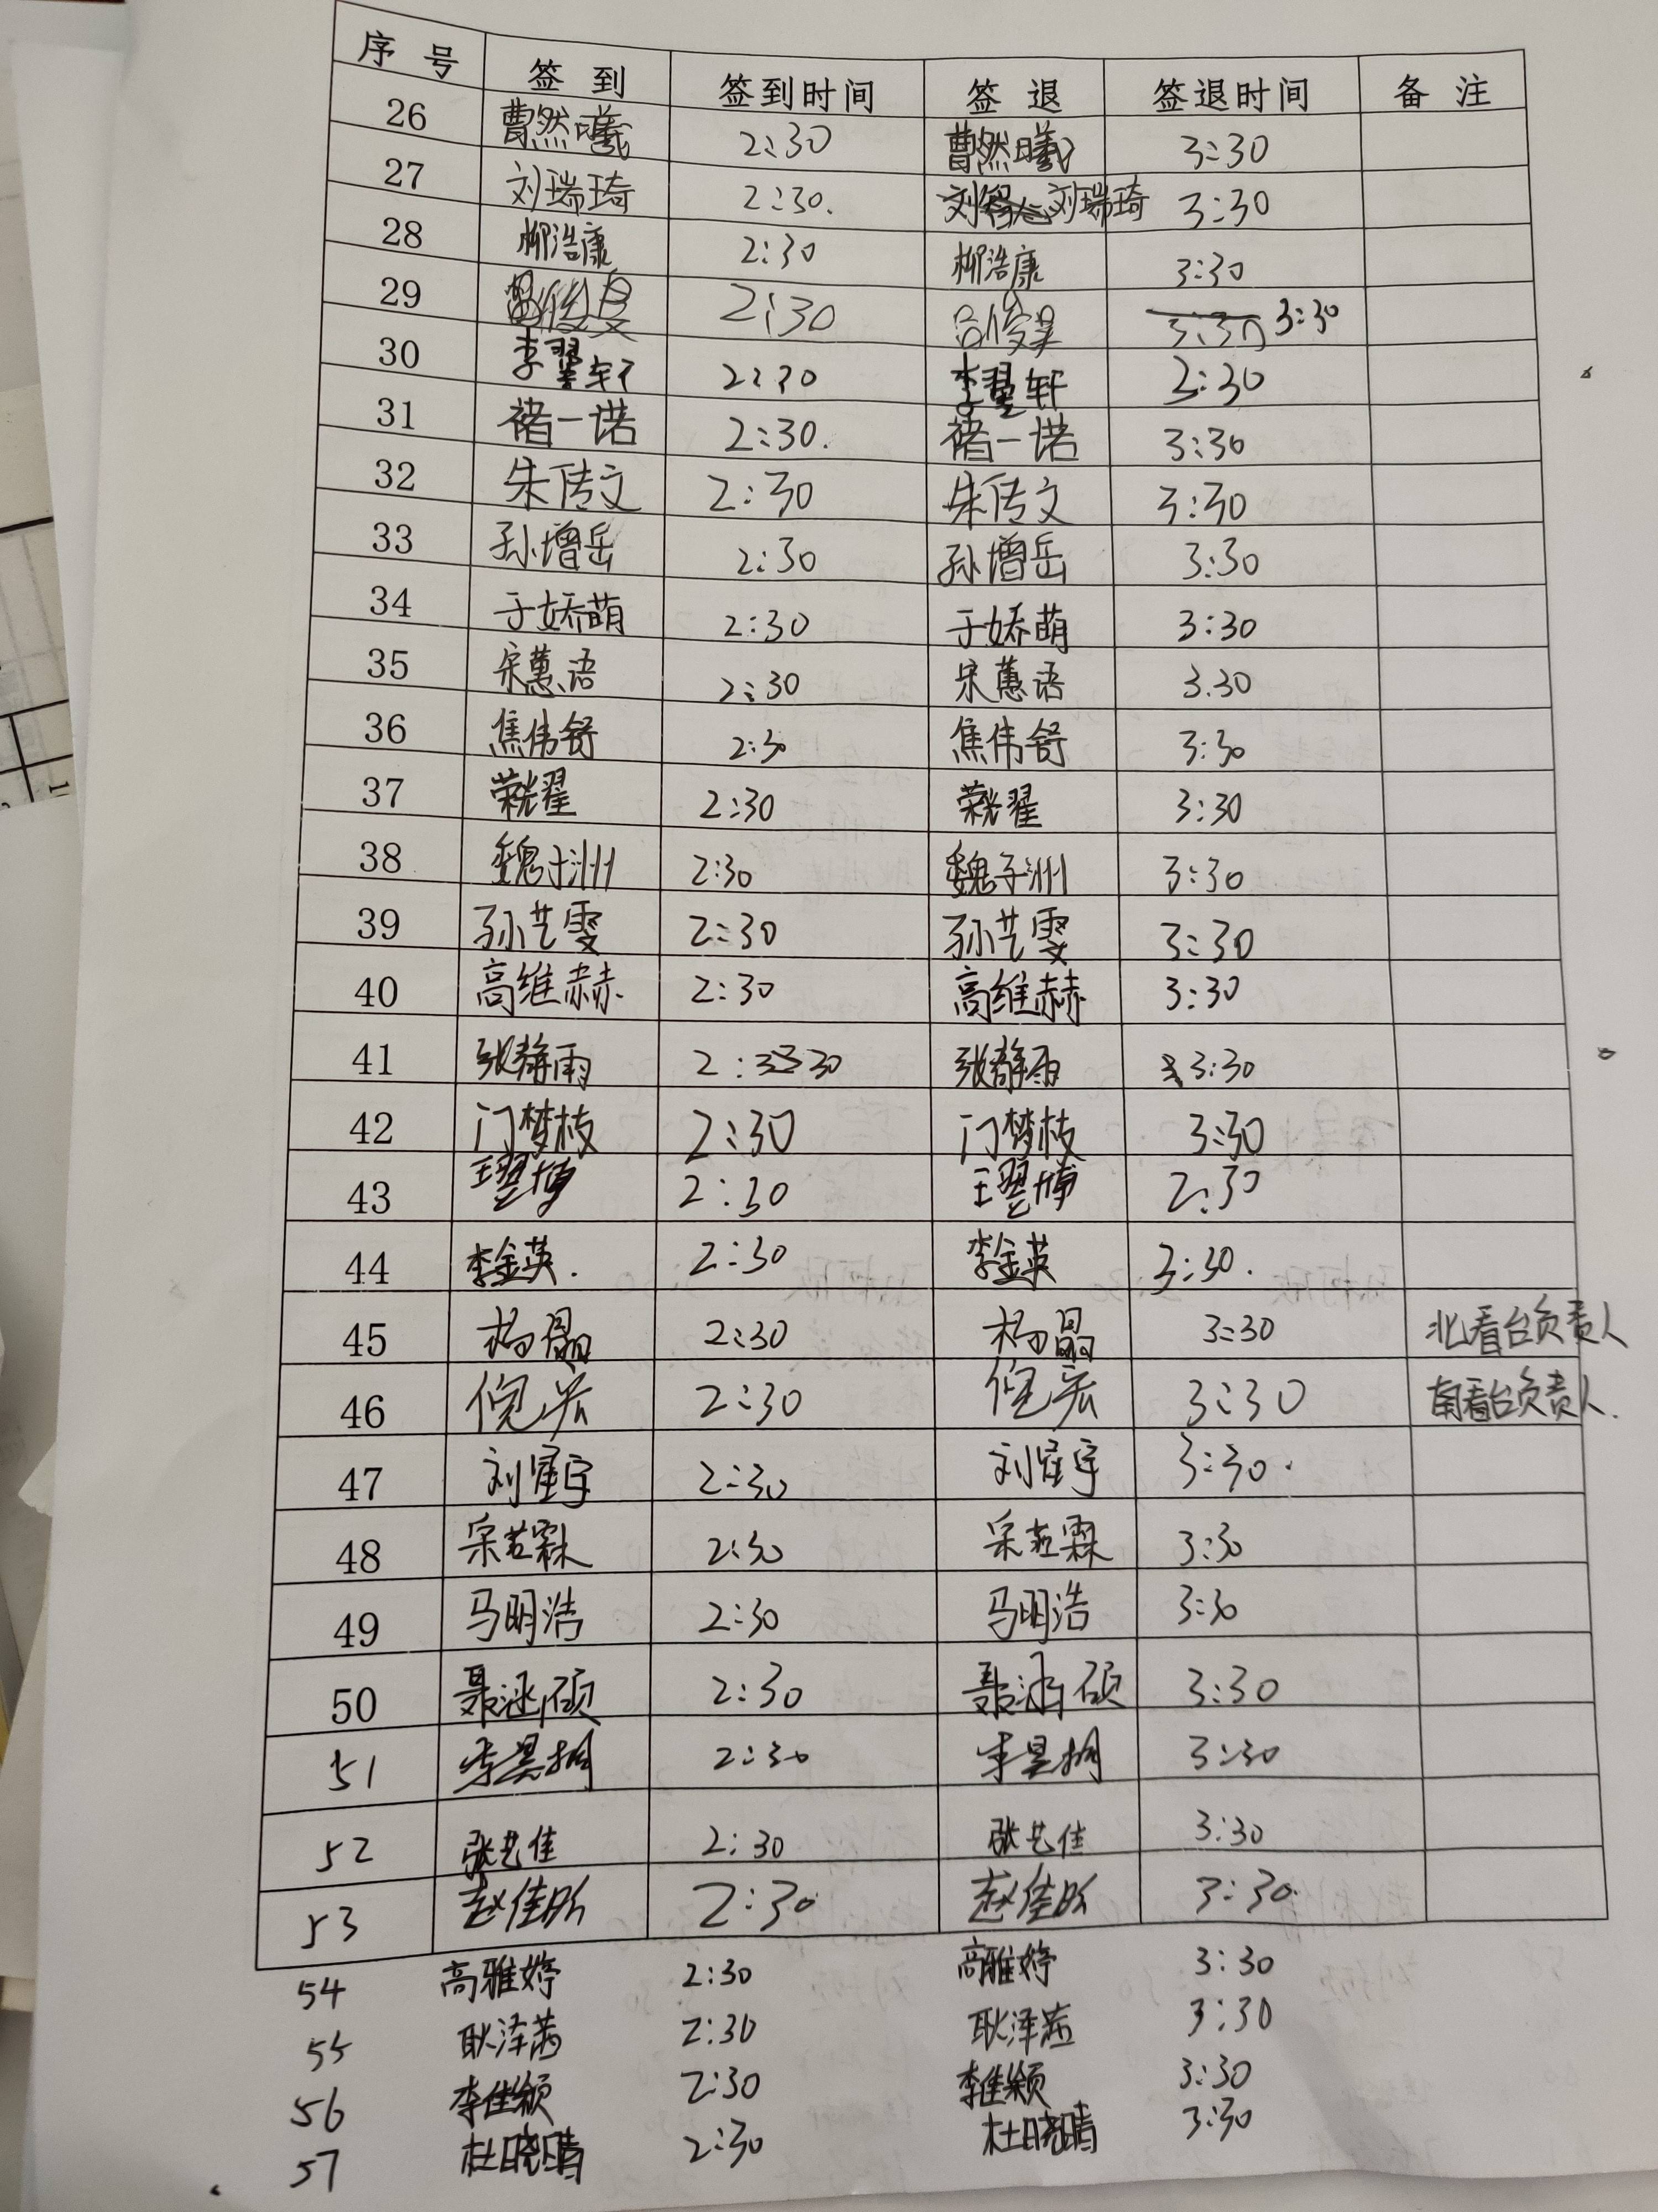 序号 签到 签到时间 签退 签退时间 备注
26 曹然曦 2:30 曹然曦 3:30
27 刘瑞琦 2:30. 刘瑞琦 3:30
28 柳浩康 2:30 柳浩康 3:30
29 2:30 3:30 3:30
30 李翌轩 2:30 李翌轩 3:30
31 褚一诺 2:30. 褚一诺 3:30
32 朱传文 2:30 朱传文 3:30
33 孙增岳 2:30 孙增岳 3:30
34 于娇萌 2:30 于娇萌 3:30
35 宋蕙语 2:30 宋蕙语 3.30
36 焦伟舒 2:30 焦伟舒 3:30
37 2:30 3:30
38 魏子洲 2:30 魏子洲 3:30
39 孙艺雯 2:30 孙艺雯 3:30
40 高维赫 2:30 高维赫 3:30
41 张静雨 2:30 张静雨 3:30
42 门梦枝 2:30 门梦枝 3:30
43 王翌博 2:30 王翌博 2:30
44 李金英. 2:30 李金英 3:30.
45 杨晶 2:30 杨晶 3:30 北看台负责人
46 倪宏 2:30 倪宏 3:30 南看台负责人.
47 2:30 3:30.
48 宋若霖 2:30 宋若霖 3:30
49 马明浩 2:30 马明浩 3:30
50 聂涵硕 2:30 聂涵硕 3:30
51 李昊桐 2:30 李昊桐 3:30
52 张艺佳 2:30 张艺佳 3:30
53 2:30 3:30.
54 高雅婷 2:30 高雅婷 3:30
55 耿泽茜 2:30 耿泽茜 3:30
56 李佳颖 2:30 李佳颖 3:30
57 杜晓晴 2:30 杜晓晴 3:30